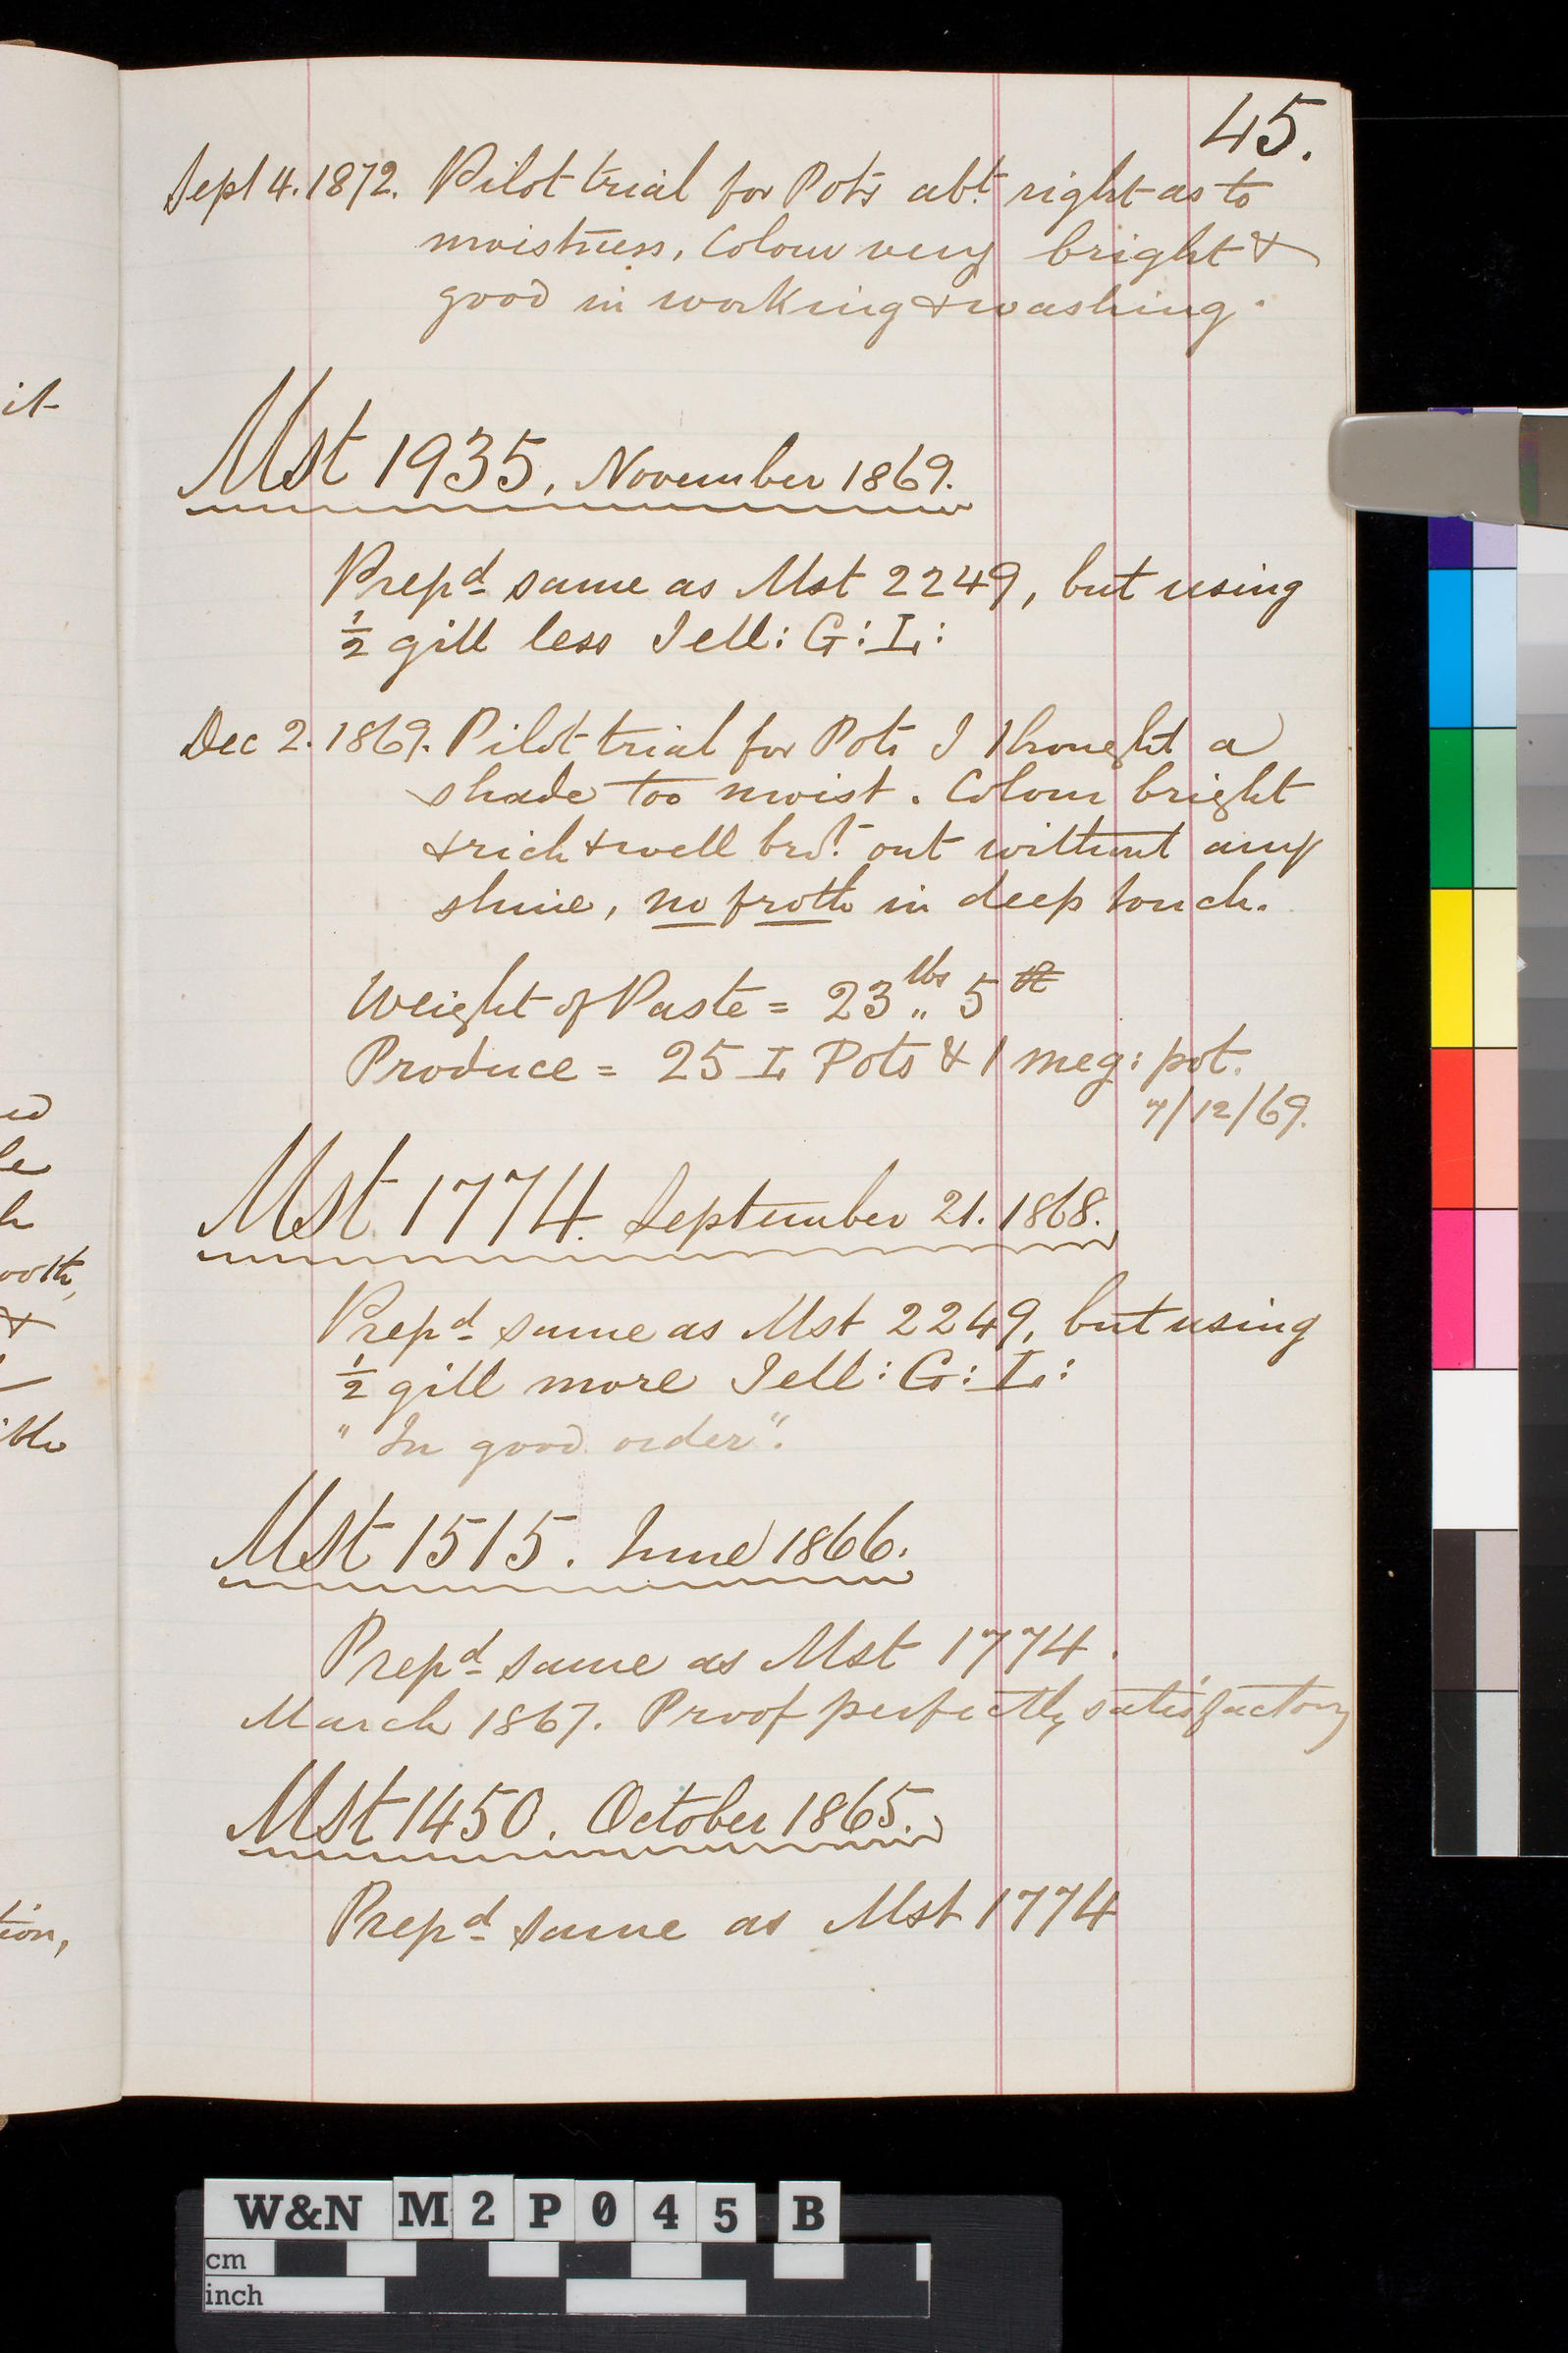 45.
Sept 4. 1872. Pilot trial for Pots abt. right as to
moistness, Colour very bright &
good in working & washing.
Mst 1935, November 1869.
Prepd same as Mst 2249, but using
½ gill less Jell: G: L:
Dec 2. 1869. Pilot trial for Pots I thought a
shade too moist. Colour bright
& rich & well brot. out without any
shine, no froth in deep touch.
Weight of Paste = 23 lbs „ 5
Produce = 25 L Pots & 1 meg: pot.
7/12/69.
Mst 1774. September 21. 1868.
Prepd same as Mst 2249, but using
½ gill more Jell: G: L:
"In good order".
Mst 1515. June 1866.
Prepd same as Mst 1774.
March 1867. Proof perfectly satisfactory
Mst 1450. October 1865.
Prepd same as Mst 1774
it
le
&
tion,
W&N M2P045 B
cm
inch